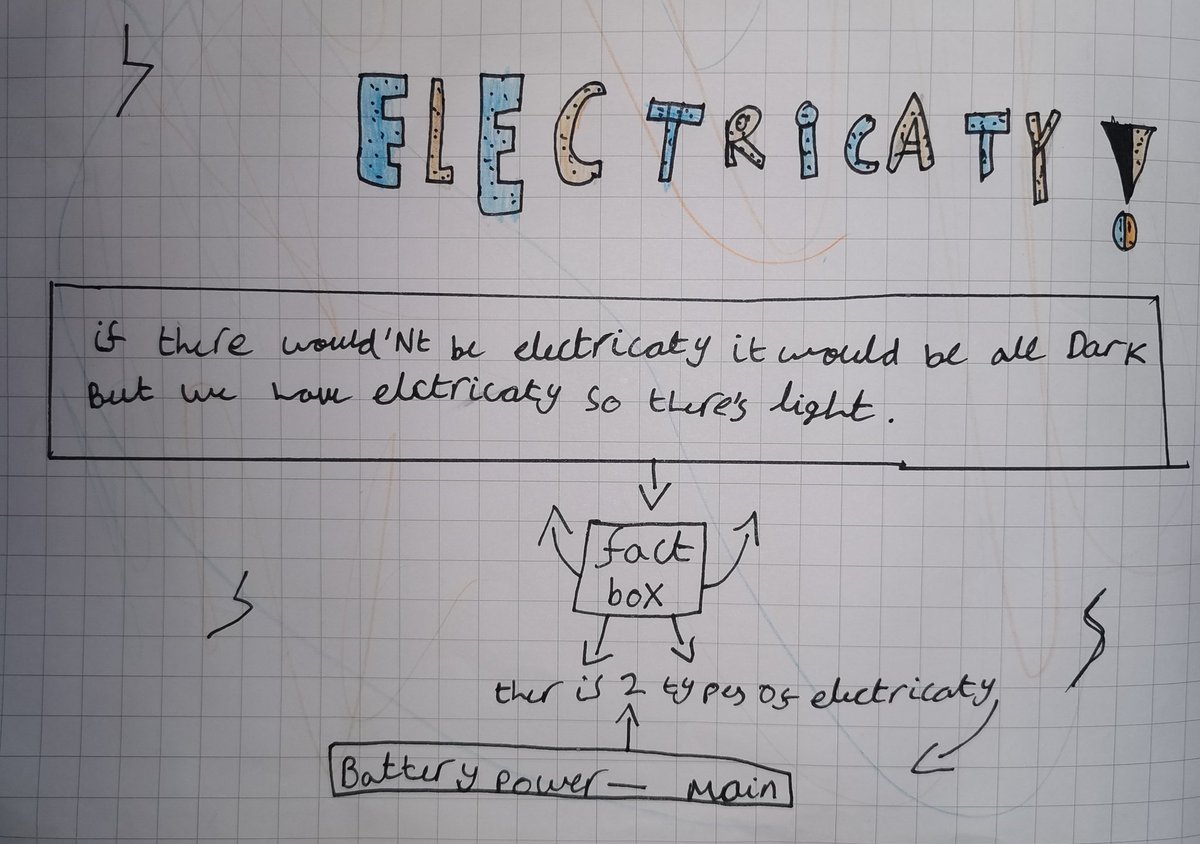 ELECTRICATY!
if there would'Nt be electricaty it would be all Dark
But we have elctricaty so there's light.
fact
box
ther is 2 types of electricaty
Battery power — Main